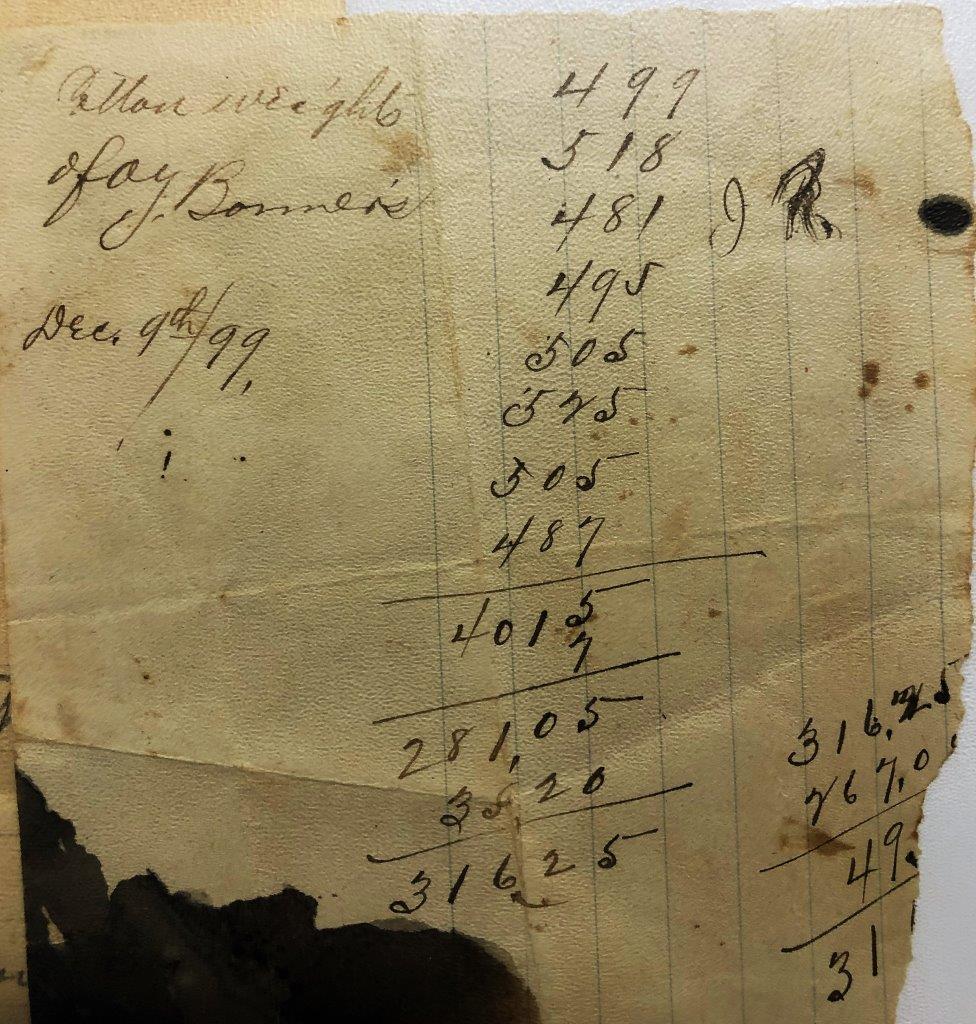 Cotton weights
of O.J. Bonner's
Dec. 9th/99,
499
518
481 J R
495
505
525
505
487
4015
7
281,05
35,20
316,25
316,25
267,0
49
31